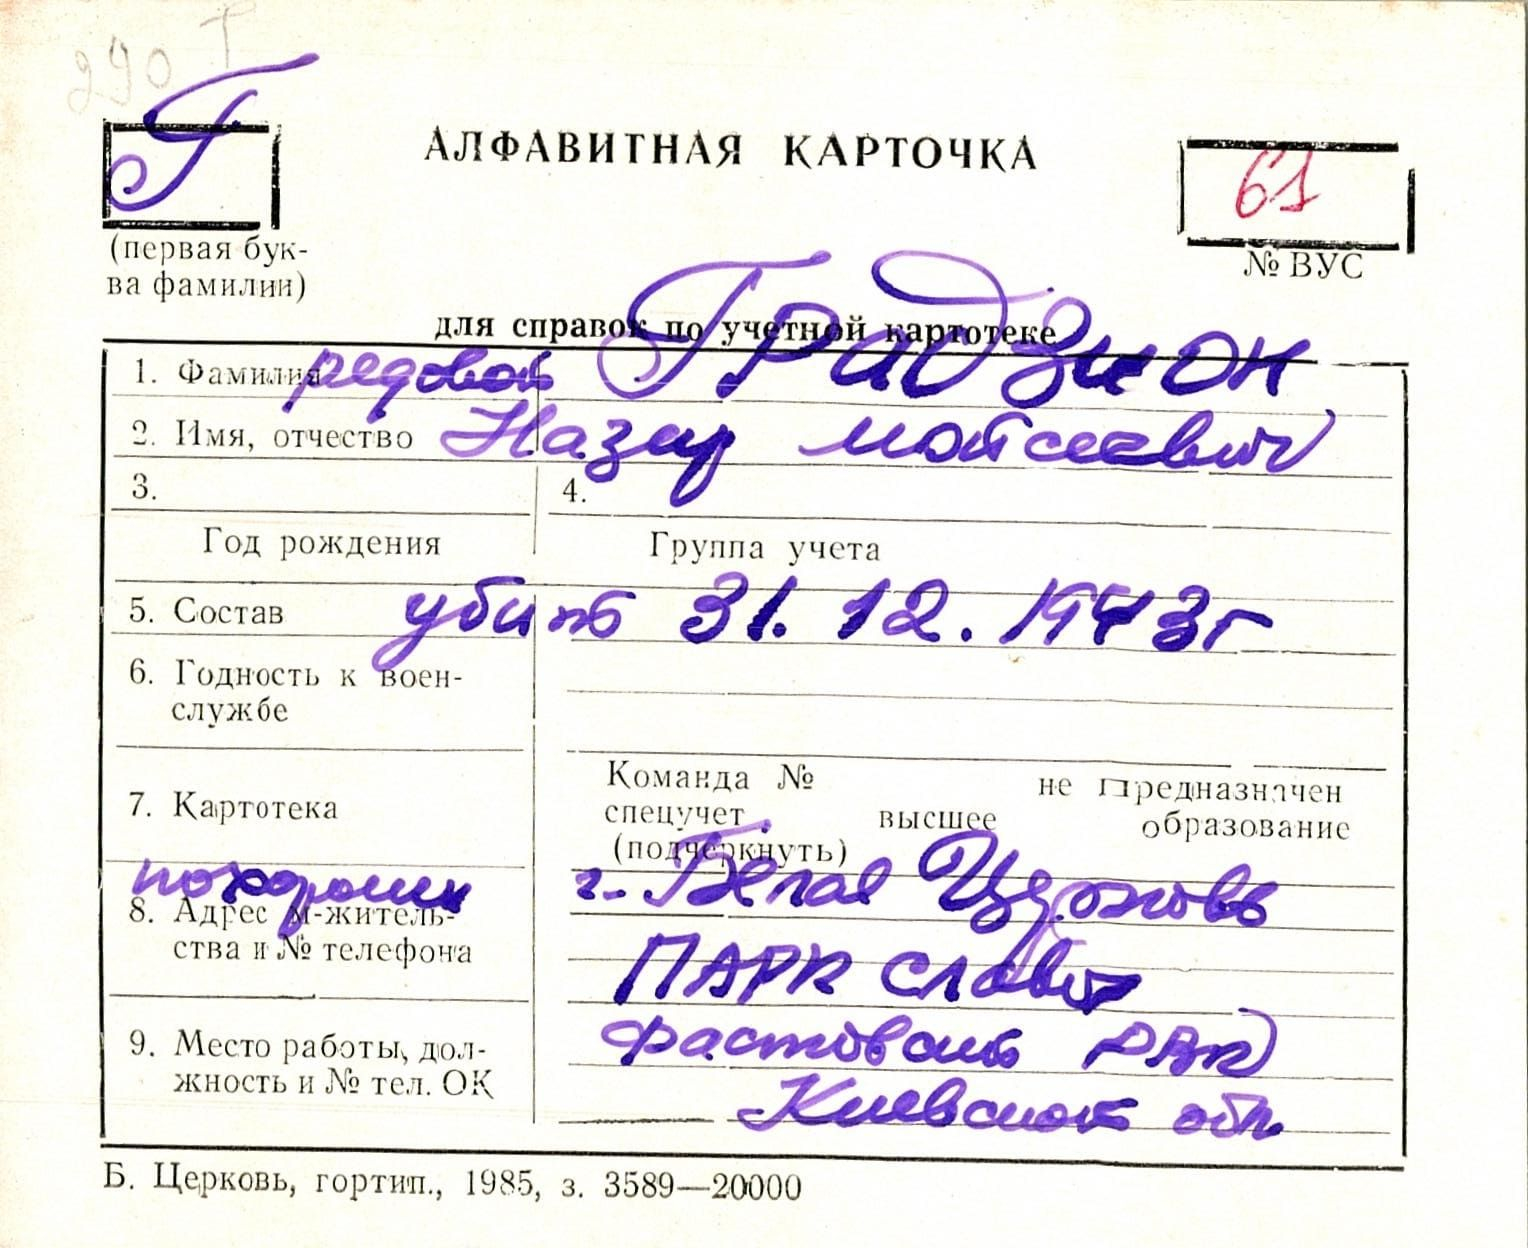 290 Г
Г
АЛФАВИТНАЯ КАРТОЧКА
61
(первая бук-
ва фамилии)
№ ВУС
для справок по учетной картотеке
1. Фамилия редовой Градзион
2. Имя, отчество Назар Мойсеевич
3. 4.
Год рождения Группа учета
5. Состав убит 31.12.1943г
6. Годность к воен-
службе
7. Картотека
Команда № не предназначен
спецучет высшее образование
(подчеркнуть)
похоронен г. Белая Церковь
8. Адрес м-житель-
ства и № телефона
ПАРК Славы
9. Место работы, дол-
жность и № тел. ОК
Фастовский РВК
Киевской обл.
Б. Церковь, гортип., 1985, з. 3589—20000